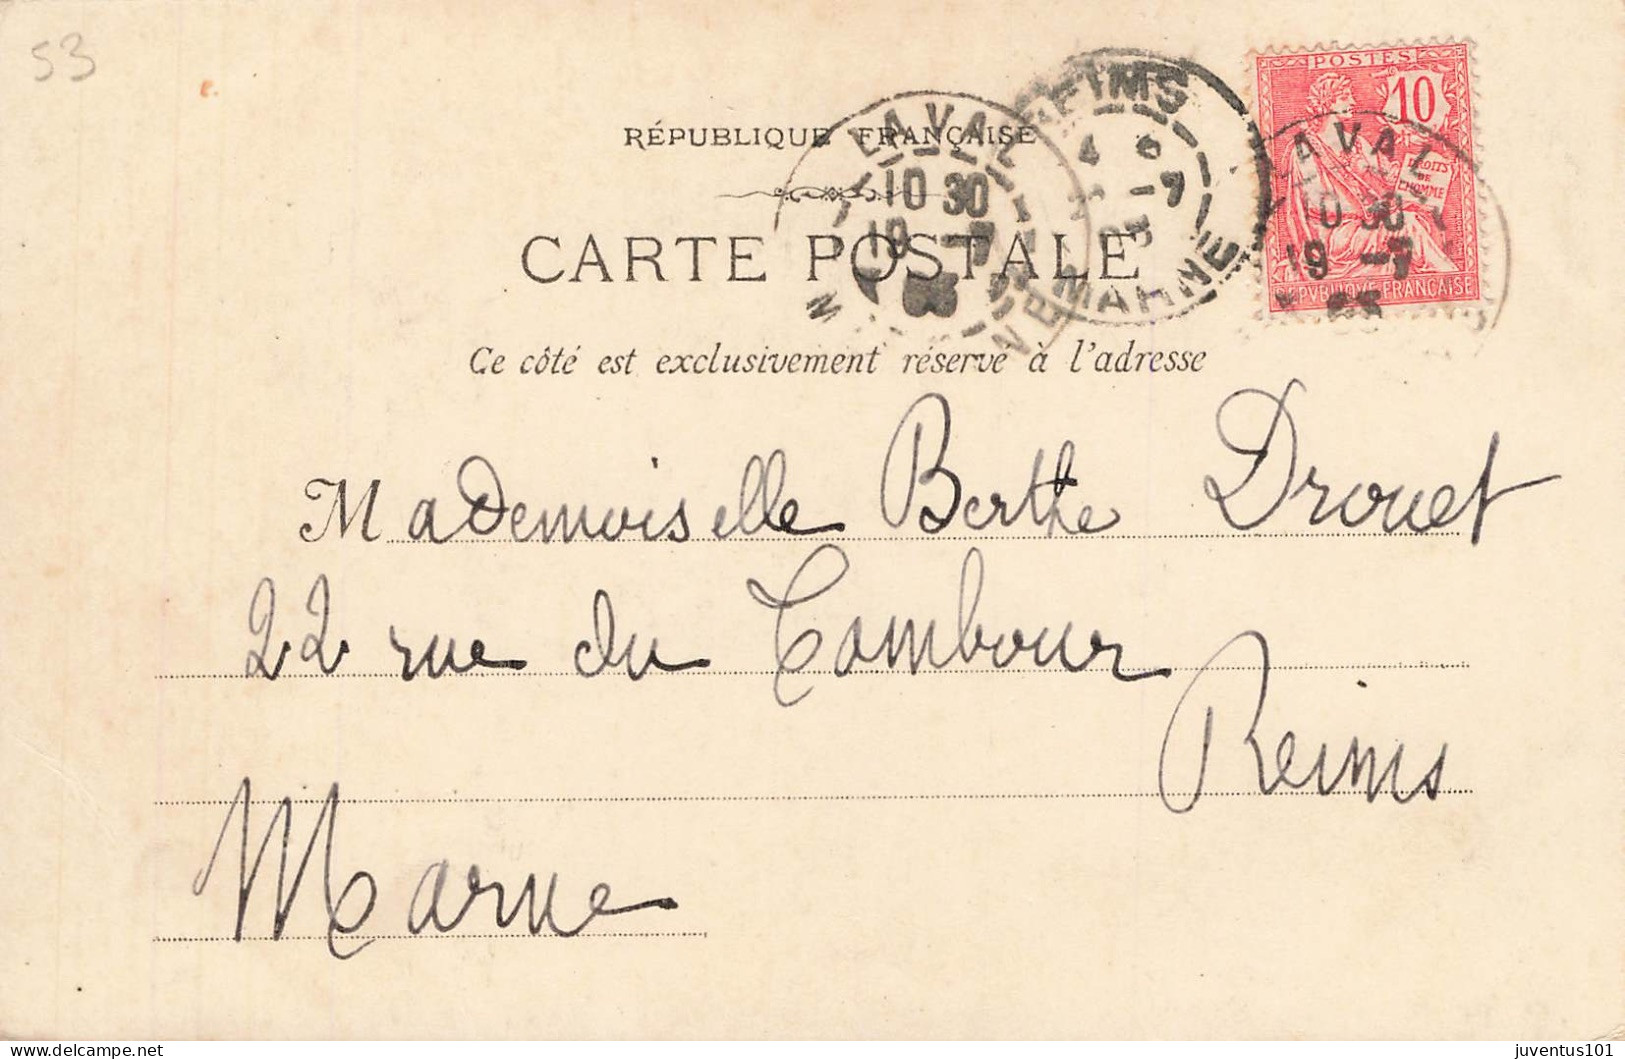 53
POSTES
10
DROITS
DE
L'HOMME
REPVBLIQUE FRANÇAISE
LAVAL
10 30
19 -7
03
LAVAL
10 30
19 -7
03
MAYENNE
REIMS
MARNE
RÉPUBLIQUE FRANÇAISE
CARTE POSTALE
Ce côté est exclusivement réservé à l'adresse
Mademoiselle Berthe Drouet
22 rue du Tambour
Reims
Marne
juventus101